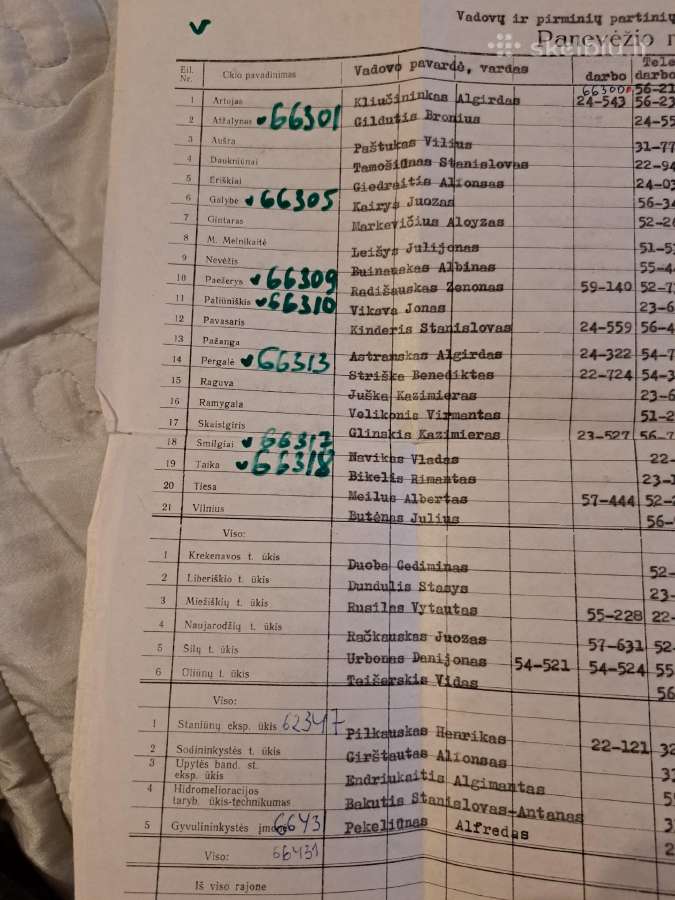 Vadovų ir pirminių partinių
Panevėžio r
skelbiu.lt
Eil. Nr. Ūkio pavadinimas Vadovo pavardė, vardas darbo Tele darbo
66300 56-21
1 Artojas Kliučininkas Algirdas 24-543 56-23
2 Atžalynas 66301 Gildutis Bronius 24-55
3 Aušra Paštukas Vilius 31-77
4 Daukniūnai Tamošiūnas Stanislovas 22-94
5 Ėriškiai Giedraitis Alfonsas 24-03
6 Galybė 66305 Kairys Juozas 56-34
7 Gintaras Markevičius Aloyzas 52-26
8 M. Melnikaitė Leišys Julijonas 51-5
9 Nevėžis Buinauskas Albinas 55-4
10 Paežerys 66309 Radišauskas Zenonas 59-140 52-7
11 Paliūniškis 66310 Viksva Jonas 23-6
12 Pavasaris Kinderis Stanislovas 24-559 56-4
13 Pažanga Astrauskas Algirdas 24-322 54-7
14 Pergalė 66313 Striška Benediktas 22-724 54-3
15 Raguva Juška Kazimieras 23-6
16 Ramygala Velikonis Virmantas 51-2
17 Skaistgiris Glinskis Kazimieras 23-527 56-7
18 Smilgiai 66317 Navikas Vladas 22-
19 Taika 66318 Bikelis Rimantas 23-1
20 Tiesa Meilus Albertas 57-444 52-2
21 Vilnius Butėnas Julius 56-
Viso:
1 Krekenavos t. ūkis Duoba Gediminas 52-
2 Liberiškio t. ūkis Dundulis Stasys 23-
3 Miežiškių t. ūkis Rusilas Vytautas 55-228 22-
4 Naujarodžių t. ūkis Račkauskas Juozas 57-631 52-
5 Šilų t. ūkis Urbonas Danijonas 54-521 54-524 55
6 Oliūnų t. ūkis Teišerskis Vidas 56
Viso:
1 Staniūnų eksp. ūkis 62347 Pilkauskas Henrikas 22-121 32
2 Sodininkystės t. ūkis Girštautas Alfonsas
3 Upytės band. st. eksp. ūkis Endriukaitis Algimantas
4 Hidromelioracijos taryb. ūkis-technikumas Bakutis Stanislovas-Antanas
5 Gyvulininkystės 6643 Pekeliūnas Alfredas
Viso: 66431
Iš viso rajone